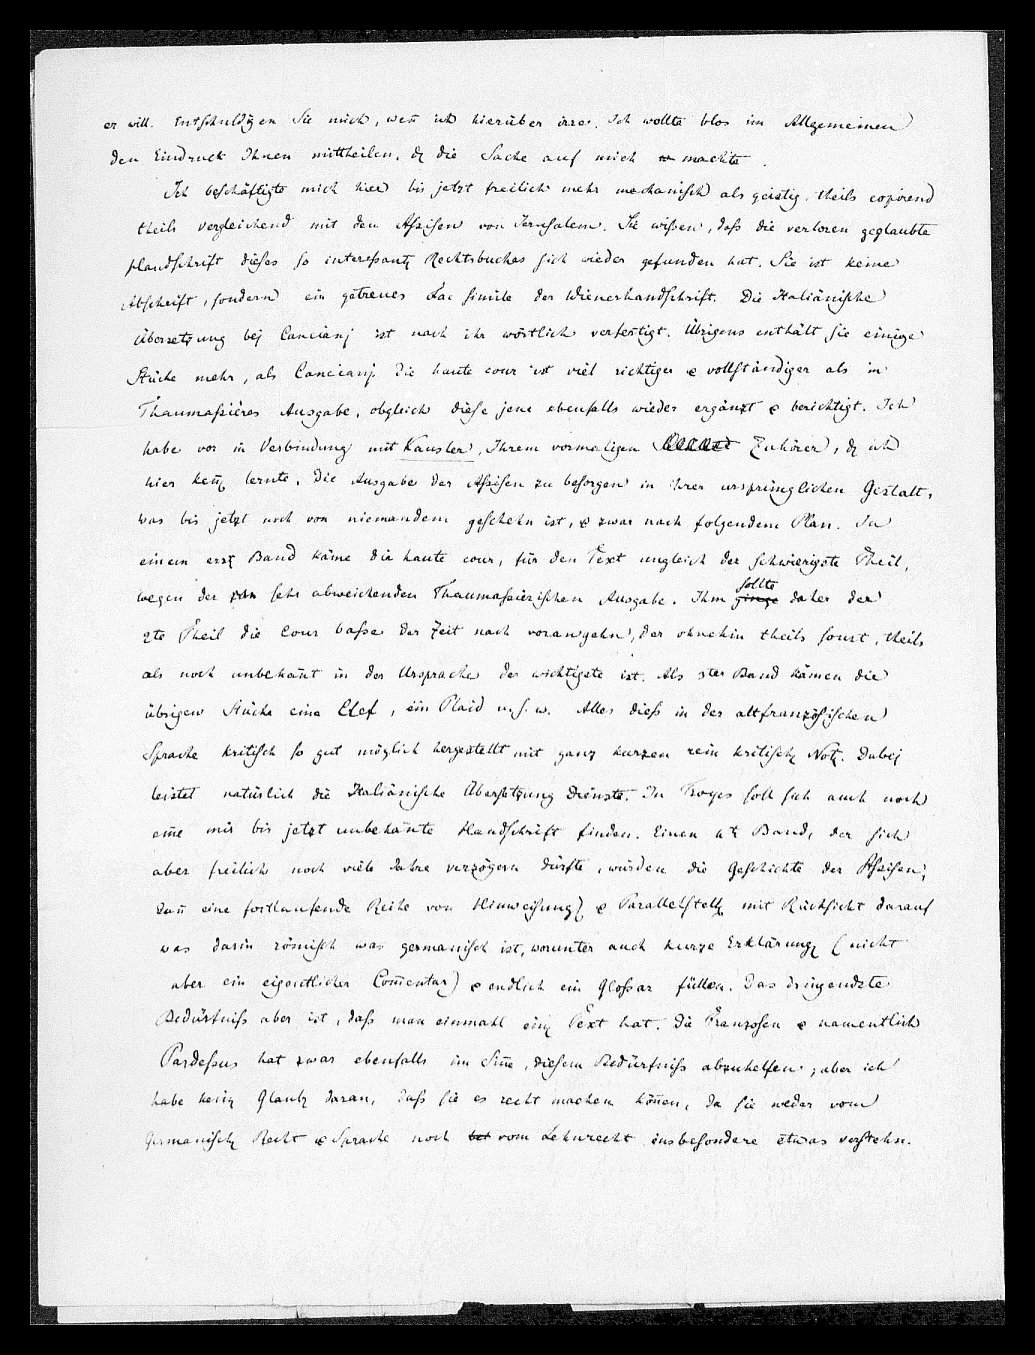 er will. Entschuldigen Sie mich, wen̄ ich hierüber irre. Ich wollte blos im Allgemeinen
den Eindruck Ihnen mittheilen, den die Sache auf mich machte.
Ich beschäftigte mich hier bis jetzt freilich mehr mechanisch als geistig, theils copirend
theils vergleichend mit den Assisen von Jerusalem. Sie wißen, daß die verloren geglaubte
Handschrift dieses so interessanten Rechtsbuches sich wieder gefunden hat. Sie ist keine
Abschrift, sondern ein getreues Fac simile der Wienerhandschrift. Die Italiänische
Übersetzung bej Cancianj ist nach ihr wörtlich verfertigt. Übrigens enthält sie einige
Stücke mehr, als Cancianj. Die haute cour ist viel richtiger & vollständiger als in
Thaumassières Ausgabe, obgleich diese jene ebenfalls wieder ergänzt & berichtigt. Ich
habe vor in Verbindung mit Kausler, Ihrem vormaligen Zuhörer, den ich
hier kennen lernte, die Ausgabe der Assisen zu besorgen in ihrer ursprünglichen Gestalt,
was bis jetzt noch von niemandem geschehn ist, & zwar nach folgendem Plan. In
einem ersten Band käme die haute cour, für den Text ungleich der schwierigste Theil,
wegen der sehr abweichenden Thaumassièrischen Ausgabe. Ihm ginge sollte daher der
2te Theil die Cour basse der Zeit nach vorangehn, der ohnehin theils sonst, theils
als noch unbekan̄t in der Ursprache der wichtigste ist. Als 3ter Band kämen die
übrigen Stücke eine Clef, ein Plaid u.s.w. Alles dieß in der altfranzösischen
Sprache kritisch so gut möglich hergestellt mit ganz kurzen rein kritischen Noten. Dabej
leistet natürlich die Italiänische Übersetzung Dienste. In Troyes soll sich auch noch
eine mir bis jetzt unbekan̄te Handschrift finden. Einen 4ten Band, der sich
aber freilich noch viele Jahre verzögern dürfte, würden die Geschichte der Assisen;
dan̄ eine fortlaufende Reihe von Hinweisungen & Parallelstellen mit Rücksicht darauf
was darin römisch was germanisch ist, worunter auch kurze Erklärungen (nicht
aber ein eigentlicher Com̄entar) & endlich ein Glossar füllen. Das dringendste
Bedürfniß aber ist, daß man einmahl einen Text hat. Die Franzosen & namentlich
Pardessus hat zwar ebenfalls im Sin̄e, diesem Bedürfniß abzuhelfen; aber ich
habe keinen Glauben daran, daß sie es recht machen kön̄en, da sie weder vom
Germanischen Recht & Sprache noch vom Lehnrecht insbesondere etwas verstehn.